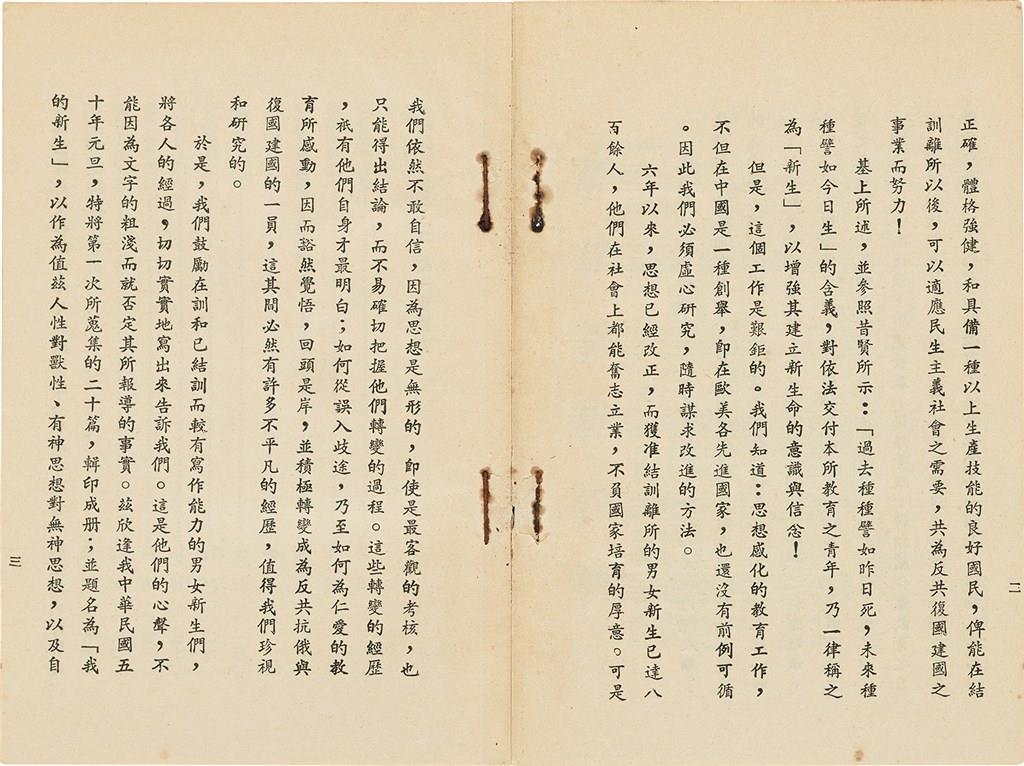 正確，體格強健，和具備一種以上生產技能的良好國民，俾能在結
訓離所以後，可以適應民生主義社會之需要，共為反共復國建國之
事業而努力！
基上所述，並參照昔賢所示：：「過去種種譬如昨日死，未來種
種譬如今日生」的含義，對依法交付本所教育之青年，乃一律稱之
為「新生」，以增強其建立新生命的意識與信念！
但是，這個工作是艱鉅的。我們知道：思想感化的教育工作，
不但在中國是一種創舉，即在歐美各先進國家，也還沒有前例可循
。因此我們必須虛心研究，隨時謀求改進的方法。
六年以來，思想已經改正，而獲准結訓離所的男女新生已達八
百餘人，他們在社會上都能奮志立業，不負國家培育的厚意。可是
二
我們依然不敢自信，因為思想是無形的，即使是最客觀的考核，也
只能得出結論，而不易確切把握他們轉變的過程。這些轉變的經歷
，祇有他們自身才最明白；如何從誤入歧途，乃至如何為仁愛的教
育所感動，因而豁然覺悟，回頭是岸，並積極轉變成為反共抗俄與
復國建國的一員，這其間必然有許多不平凡的經歷，值得我們珍視
和研究的。
於是，我們鼓勵在訓和已結訓而較有寫作能力的男女新生們，
將各人的經過，切切實實地寫出來告訴我們。這是他們的心聲，不
能因為文字的粗淺而就否定其所報導的事實。茲欣逢我中華民國五
十年元旦，特將第一次所蒐集的二十篇，輯印成册；並題名為「我
的新生」，以作為值茲人性對獸性、有神思想對無神思想，以及自
三